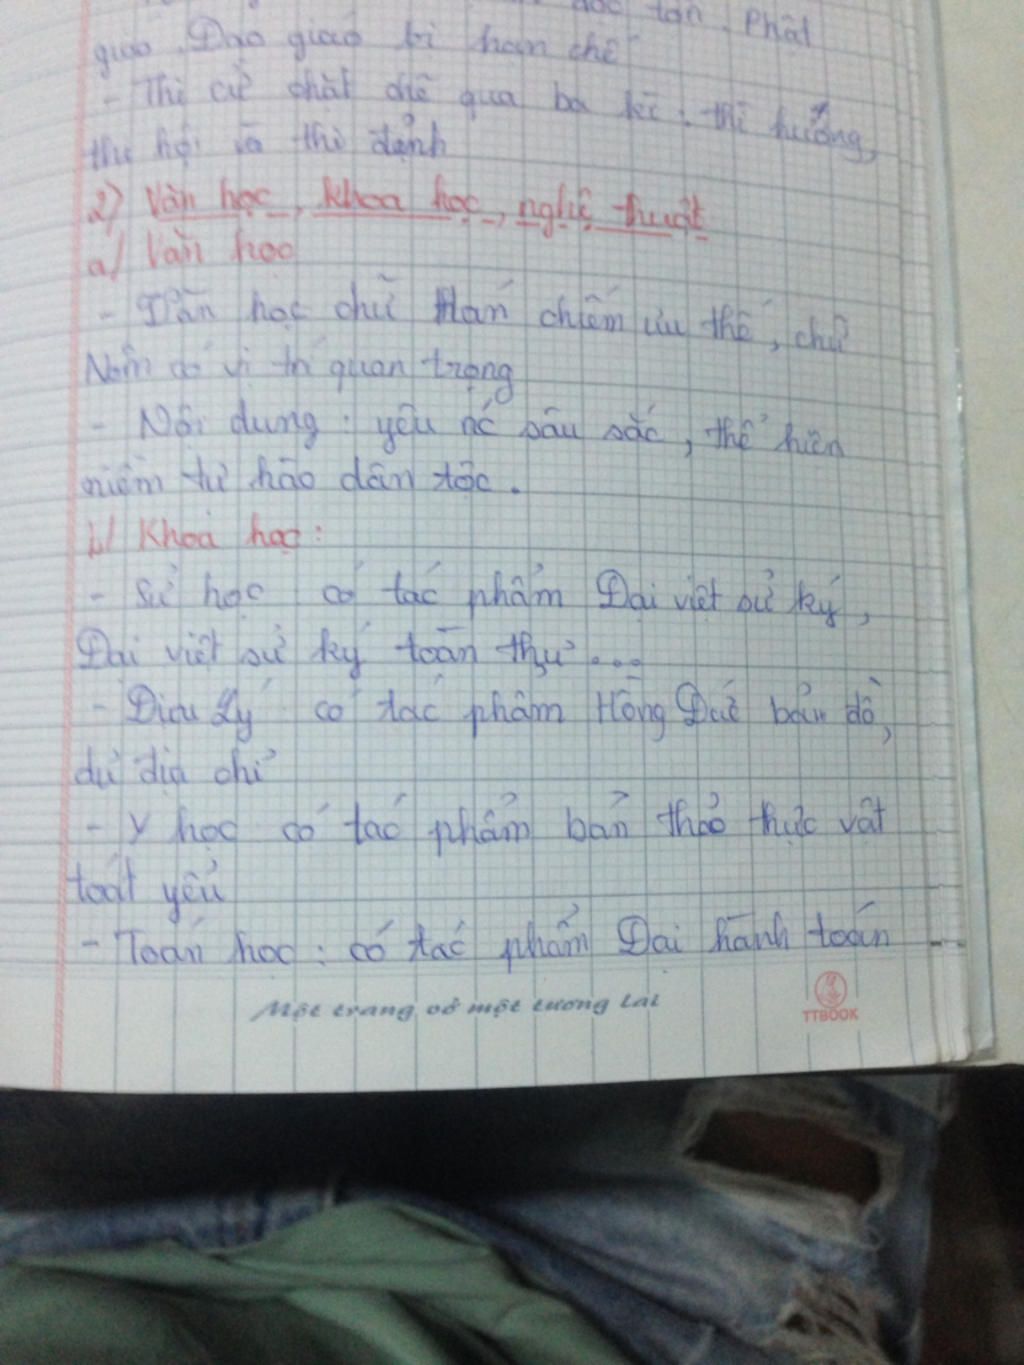 độc tôn. Phật
giáo, Đạo giáo bị hạn chế
- Thi cử chặt chẽ qua ba kì: thi hương,
thi hội và thi đình
2) Văn học, khoa học, nghệ thuật
a/ Văn học
- Văn học chữ Hán chiếm ưu thế, chữ
Nôm có vị trí quan trọng
- Nội dung: yêu nước sâu sắc, thể hiện
niềm tự hào dân tộc.
b/ Khoa học:
- Sử học có tác phẩm Đại việt sử ký,
Đại việt sử ký toàn thư...
- Địa Lý có tác phẩm Hồng Đức bản đồ,
dư địa chí
- Y học có tác phẩm bản thảo thực vật
toát yếu
- Toán học: có tác phẩm Đại hành toán
Một trang vở một tương lai
TTBOOK